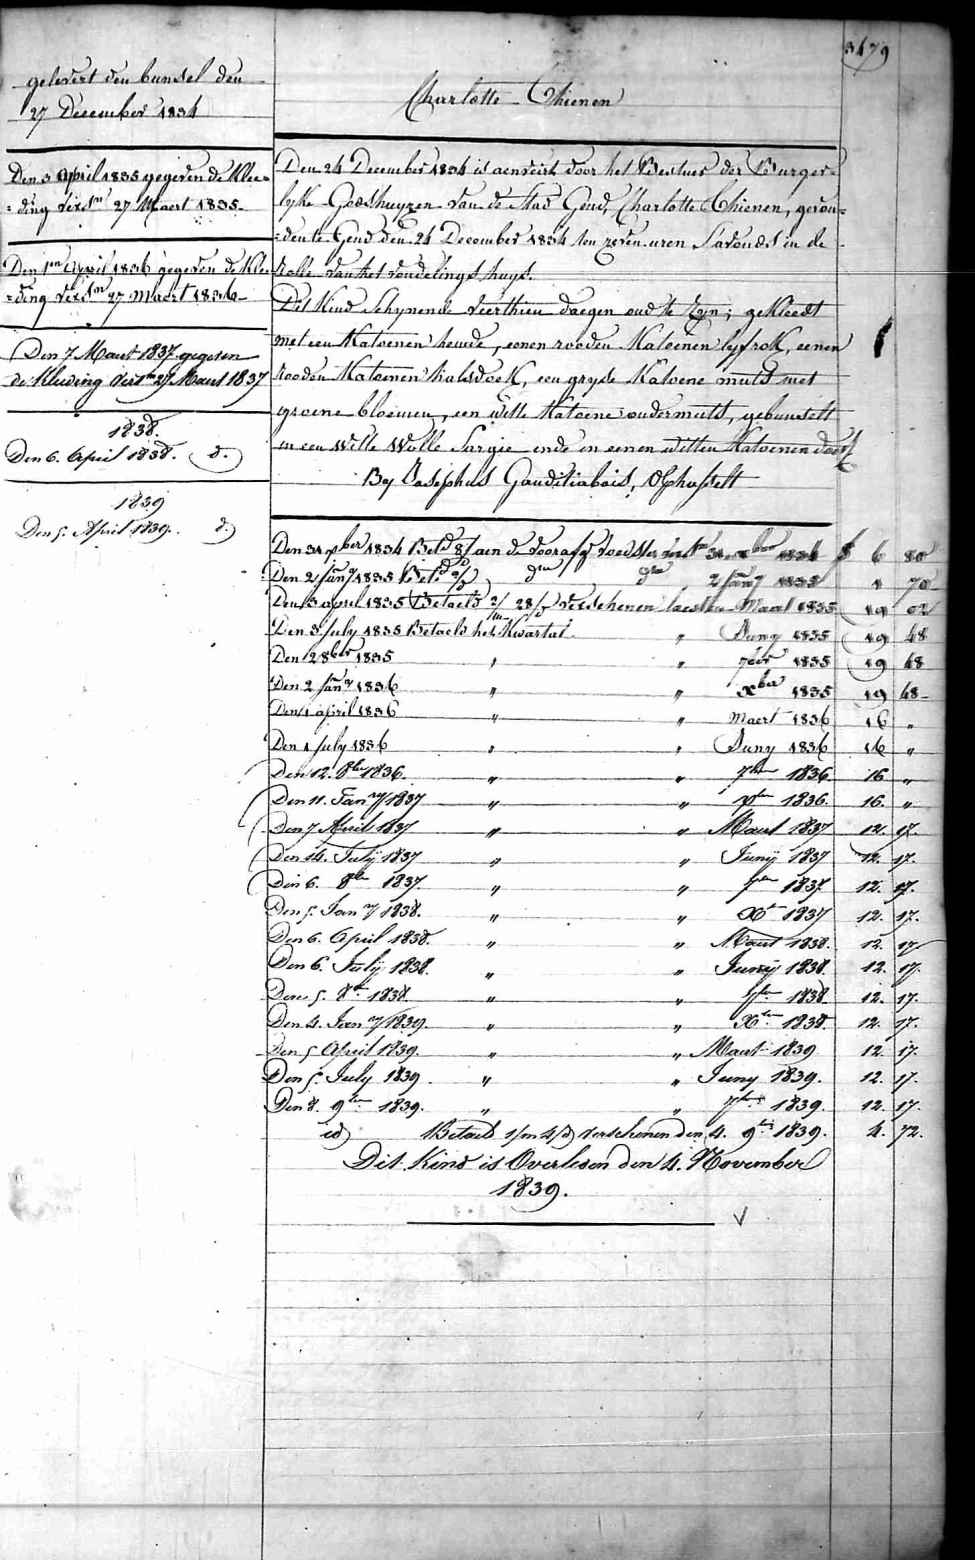 3479
gelevert den bunsel den
27 December 1834
Den 3 april 1835 gegeven de klee=
=ding versn 27 Maert 1835
Den 1en April 1836 gegeven de klee
=ding versn 27 Maert 1836
Den 7 Maart 1837 gegeven
de Kleeding versn 27 Maart 1837
1838.
Den 6. April 1838. d.
1839
Den 5. April 1839. d.
Charlotte Thienen
Den 24 December 1834 is aenveird door het Bestuer der Burger=
lyke Godshuyzen van de Stad Gend, Charlotte Thienen, gevon=
=den te Gend den 24 December 1834 ten zeven uren S'avonds in de
rolle van het vondelingshuys.
Dit Kind schynende veerthien daegen oud te zyn; gekleedt
met een Katoenen hemde, eenen rooden Katoenen lyfrok, eenen
rooden Katoenen halsdoek, een gryse Katoene muts met
groene bloemen, een witte Katoene ondermuts, gebunselt
in een Witte Wolle Sargie ende in eenen witten Katoenen doek
By Josephus
Den 31 xber 1834 31 xber 1834 f 6 80
Den 2 Jany 1835 Betd dto dto 2 Jany 1835 1 70
Den 3 april 1835 Betaeld verschenen laesten Maert 1835 19 02
Den 3 July 1835 Betaeld het Kwartael " Juny 1835 19 48
Den 2 8ber 1835 " " 7ber 1835 19 48
Den 2 Jany 1836 " " xber 1835 19 48
Den 1 april 1836 " " Maert 1836 16 "
Den 1 July 1836 " " Juny 1836 16 "
Den 12. 8ber 1836. " " 7ber 1836. 16 "
Den 11. Jany 1837 " " xber 1836. 16. "
Den 7 April 1837 " " Maart 1837 12. 17.
Den 14. July 1837 " " Juny 1837 12. 17.
Den 6. 8ber 1837. " " 7ber 1837. 12. 17.
Den 5. Jany 1838. " " Xber 1837 12. 17.
Den 6. April 1838. " " Maart 1838. 12. 17
Den 6. July 1838. " " Juny 1838. 12. 17.
Den 5. 8ber 1838. " " 7ber 1838 12. 17.
Den 4. Jany 1839. " " Xber 1838. 12. 17.
Den 5 April 1839. " " Maart 1839 12. 17.
Den 5. July 1839. " " Juny 1839. 12. 17.
Den 8. 9ber 1839. " " 7ber 1839. 12. 17.
id Betaeld 1/m 4/d verschenen den 4. 9ber 1839. 4. 72.
Dit Kind is Overleden den 4. November
1839.